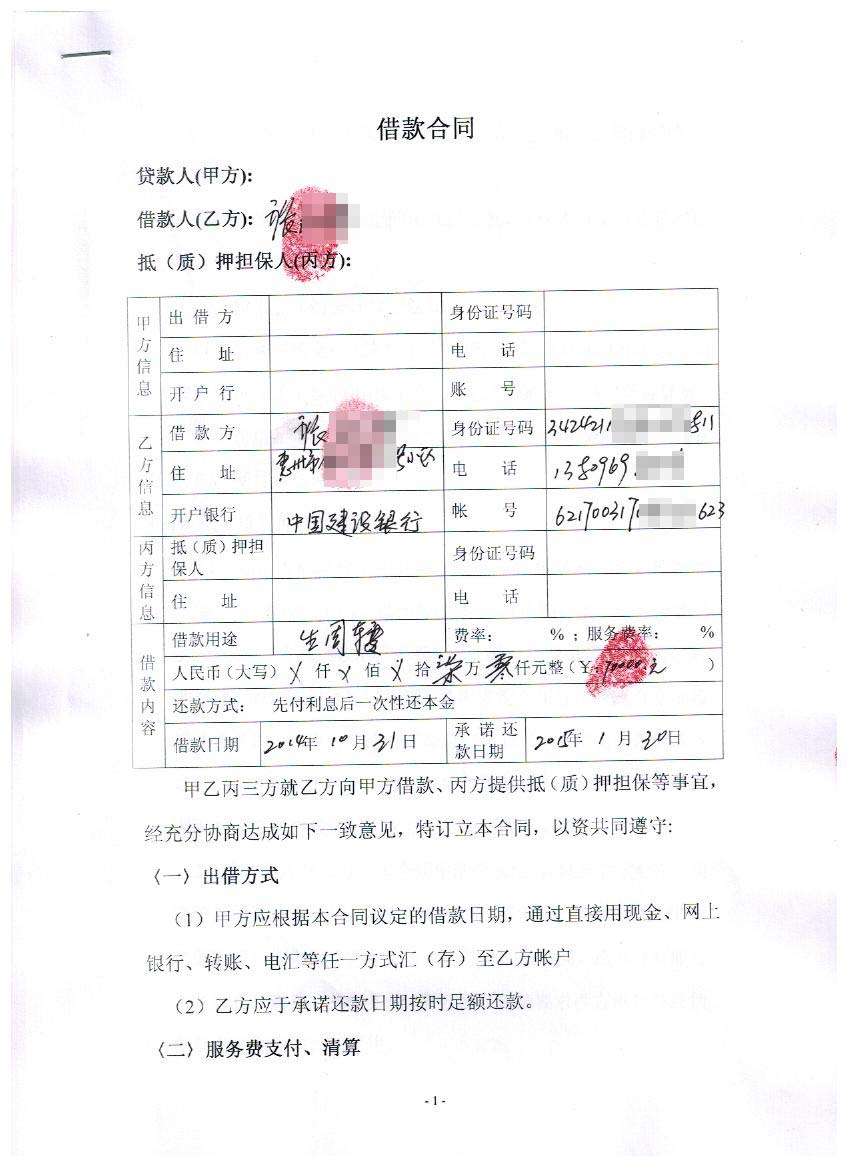 借款合同
贷款人(甲方):
借款人(乙方): 张
抵（质）押担保人(丙方):
甲方信息
出 借 方 身份证号码
住 址 电 话
开 户 行 账 号
乙方信息
借 款 方 张 身份证号码 3424211 811
住 址 惠州市 电 话 1380969
开户银行 中国建设银行 帐 号 621700317 623
丙方信息
抵（质）押担保人 身份证号码
住 址 电 话
借款内容
借款用途 生周转 费率: %；服务费率: %
人民币（大写）X 仟 X 佰 X 拾 柒 万 零 仟元整（¥:70000.元 ）
还款方式: 先付利息后一次性还本金
借款日期 2014年 10 月 31 日 承 诺 还款日期 2015年 1 月 30日
甲乙丙三方就乙方向甲方借款、丙方提供抵（质）押担保等事宜，
经充分协商达成如下一致意见，特订立本合同，以资共同遵守:
〈一〉出借方式
（1）甲方应根据本合同议定的借款日期，通过直接用现金、网上
银行、转账、电汇等任一方式汇（存）至乙方帐户
（2）乙方应于承诺还款日期按时足额还款。
〈二〉服务费支付、清算
- 1 -